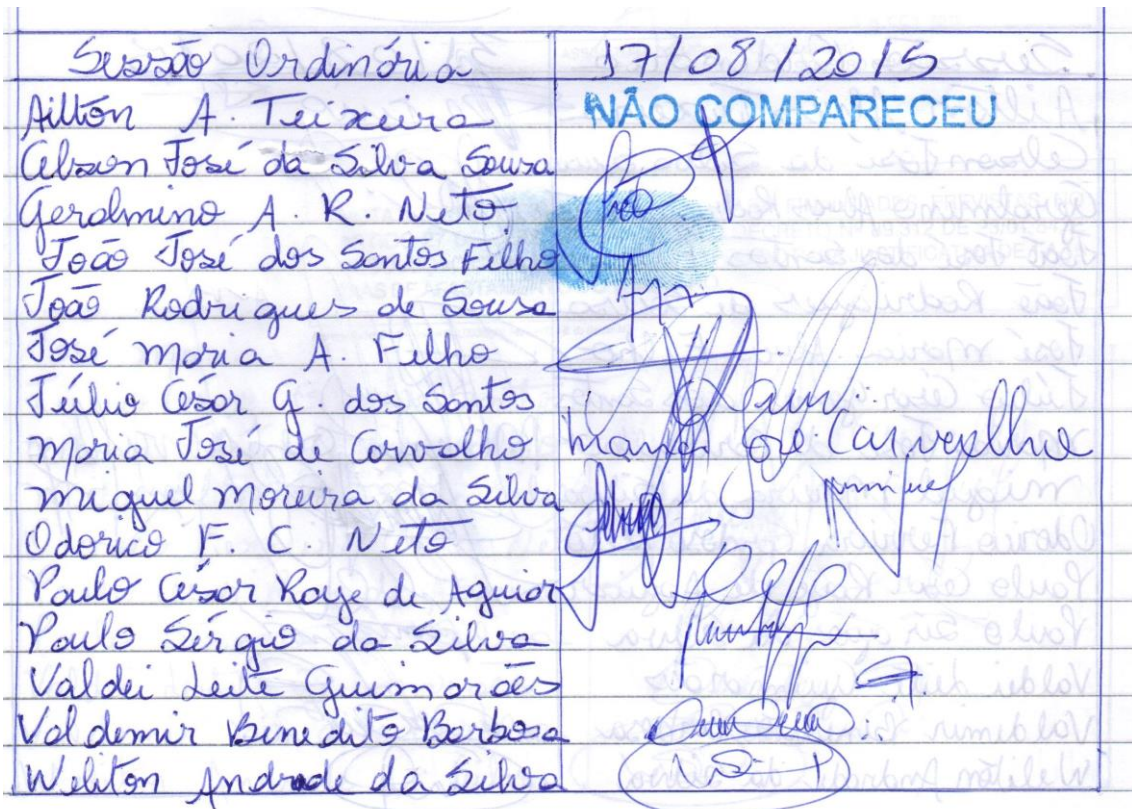 Sessão Ordinária 17/08/2015
Aílton A. Teixeira NÃO COMPARECEU
Celson José da Silva Sousa
Geralmino A. R. Neto
João José dos Santos Filho
João Rodrigues de Sousa
José Maria A. Filho
Júlio César G. dos Santos
Maria José de Carvalho Maria José Carvalho
Miguel Moreira da Silva
Odorico F. C. Neto
Paulo César Raye de Aguiar
Paulo Sérgio da Silva
Valdei Leite Guimarães
Valdemir Benedito Barbosa
Weliton Andrade da Silva